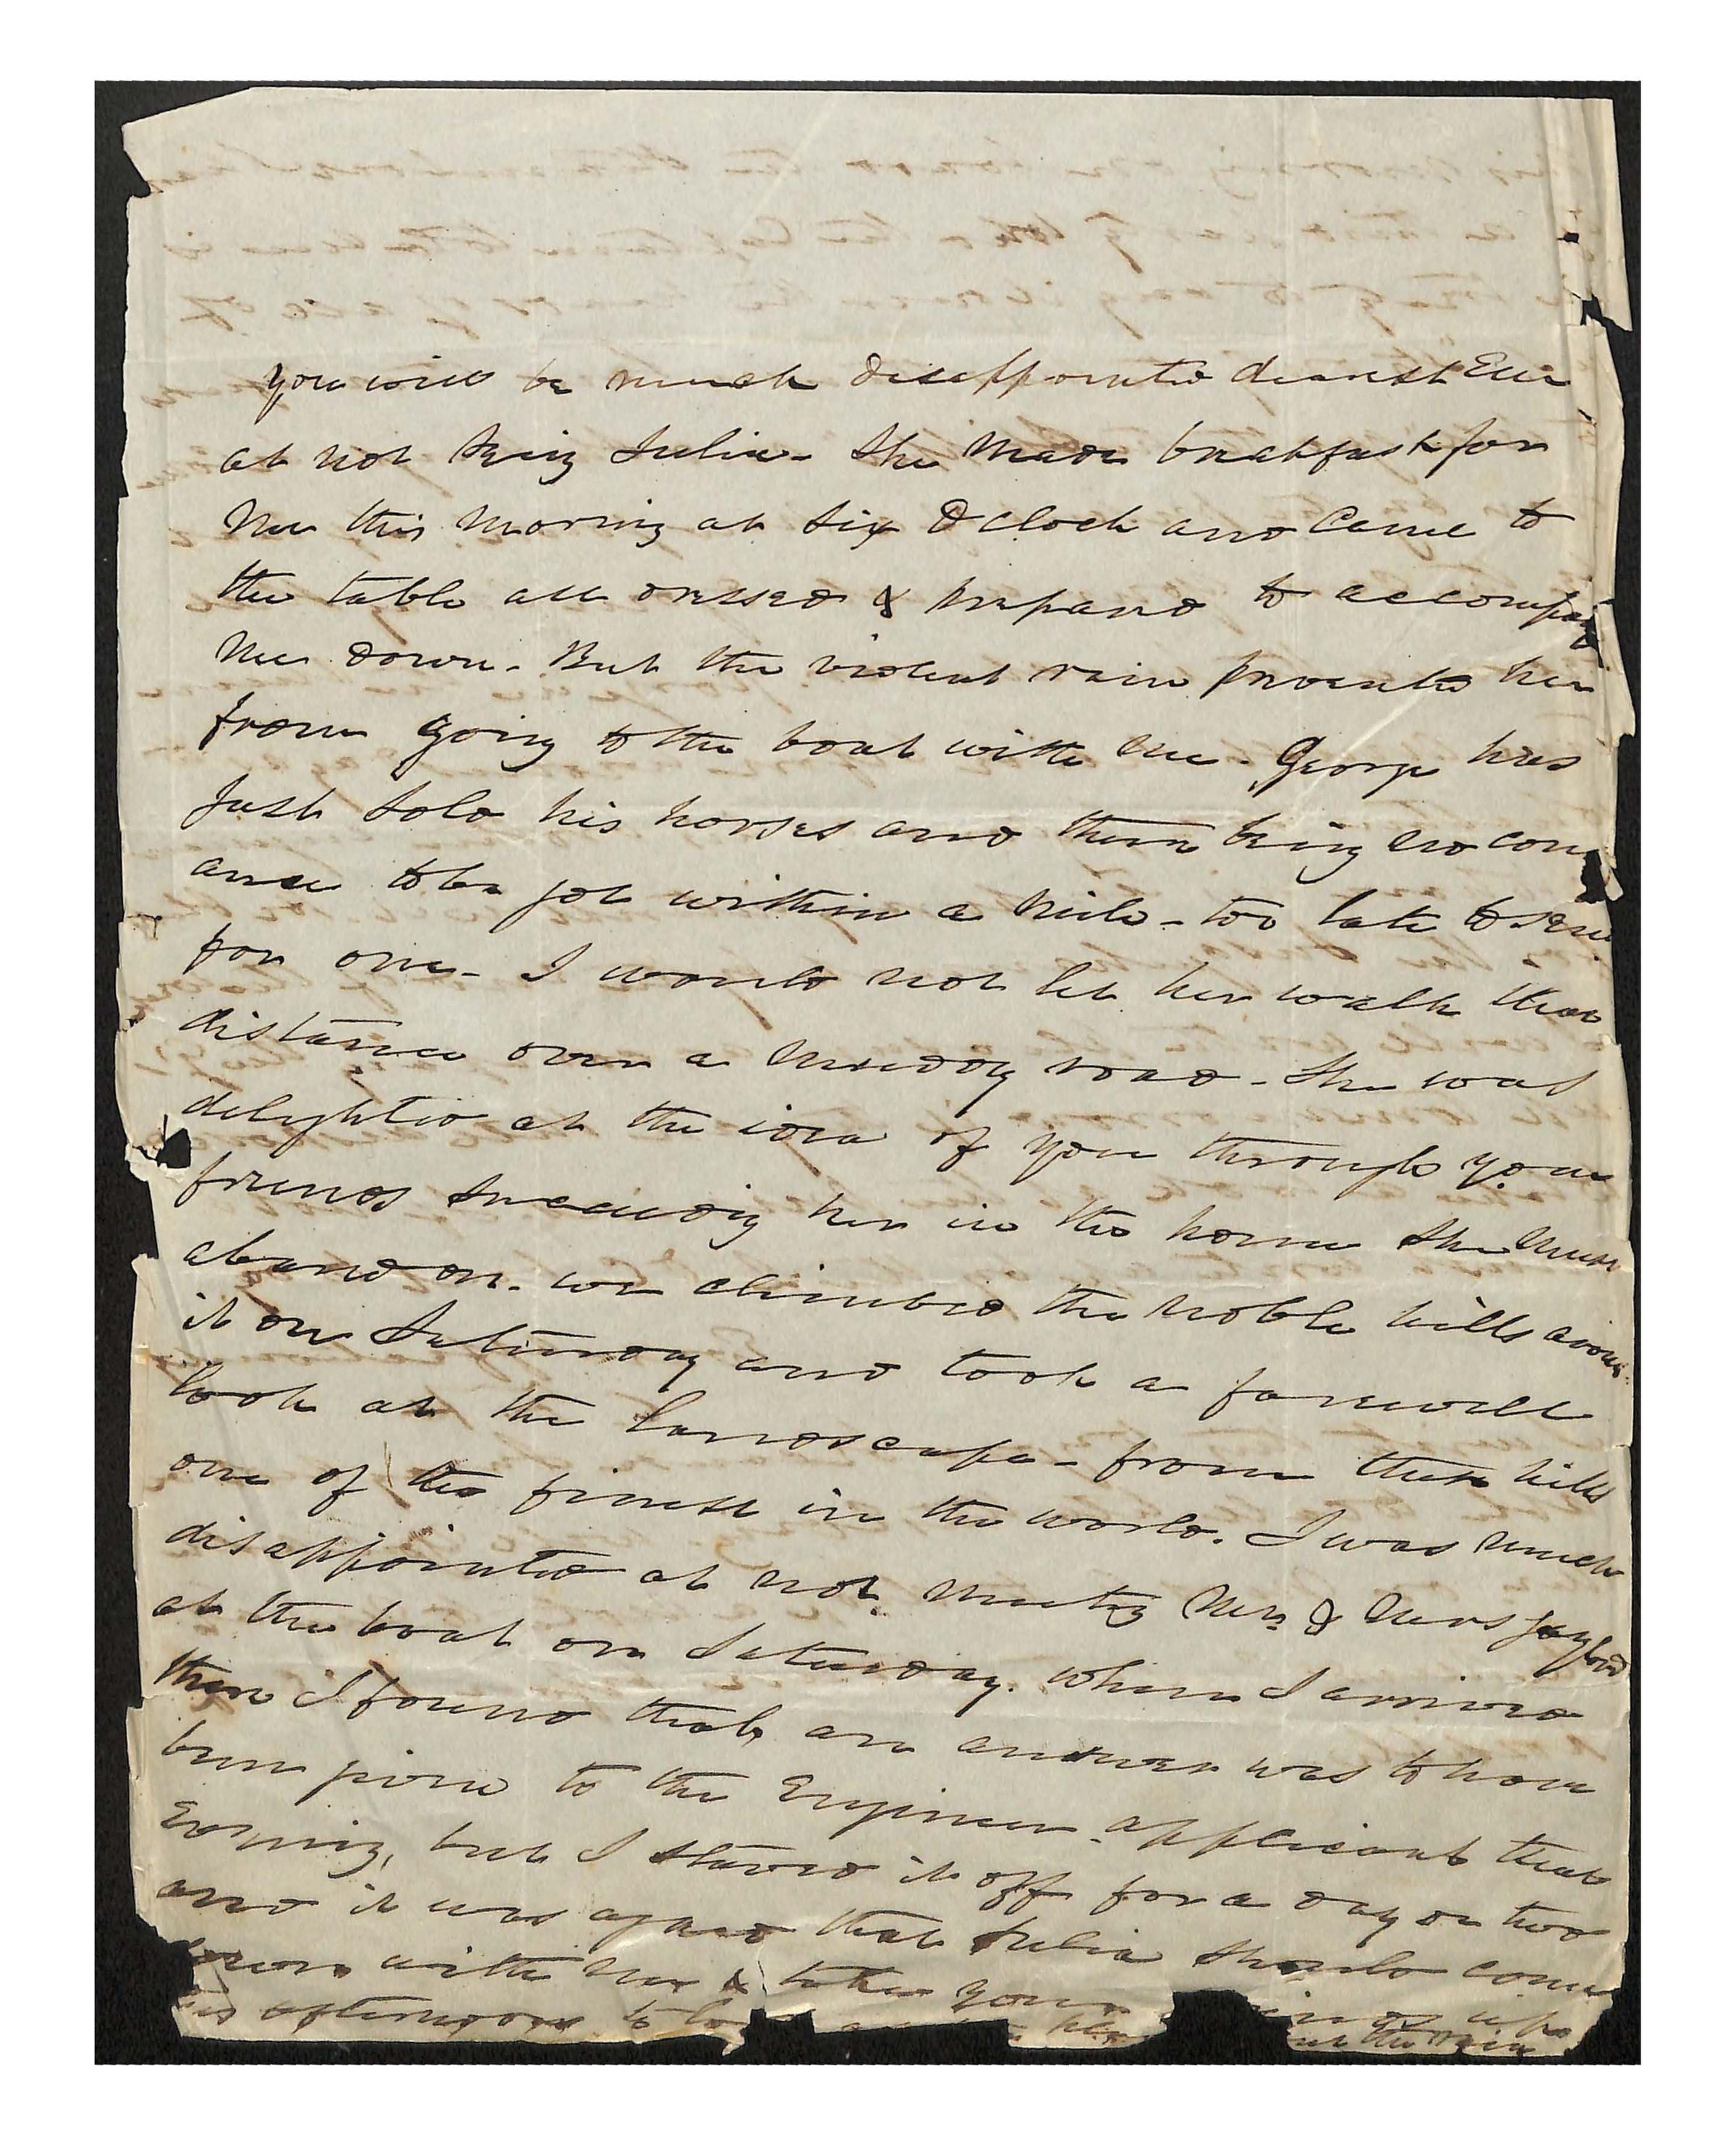 You will be much disappointed dearest
at not seeing Julia - She made breakfast for
me this morning at six O clock and came to
the table all dressed & prepared to accompany
me down - But the violent rain prevented her
from going to the boat with me - George has
just sold his horses and there being no
ance to be got within a mile - too late to send
for one - I would not let her walk that
distance over a muddy road - She was
delighted at the idea of you through your
friends succeeding her in the home she must
abandon. We climbed the noble hills
it on Saturday and took a farewell
look at the landscape - from these hills
one of the finest in the world. I was much
disappointed at not meeting Mr. & Mrs
at the boat on Saturday. When I arrived
there I found that an answer was to have
been given to the Engineer applicant that
Evening, but I staved it off for a day or two
and it was agreed that Julia should come
down with me & take your up
afternoon to the rain